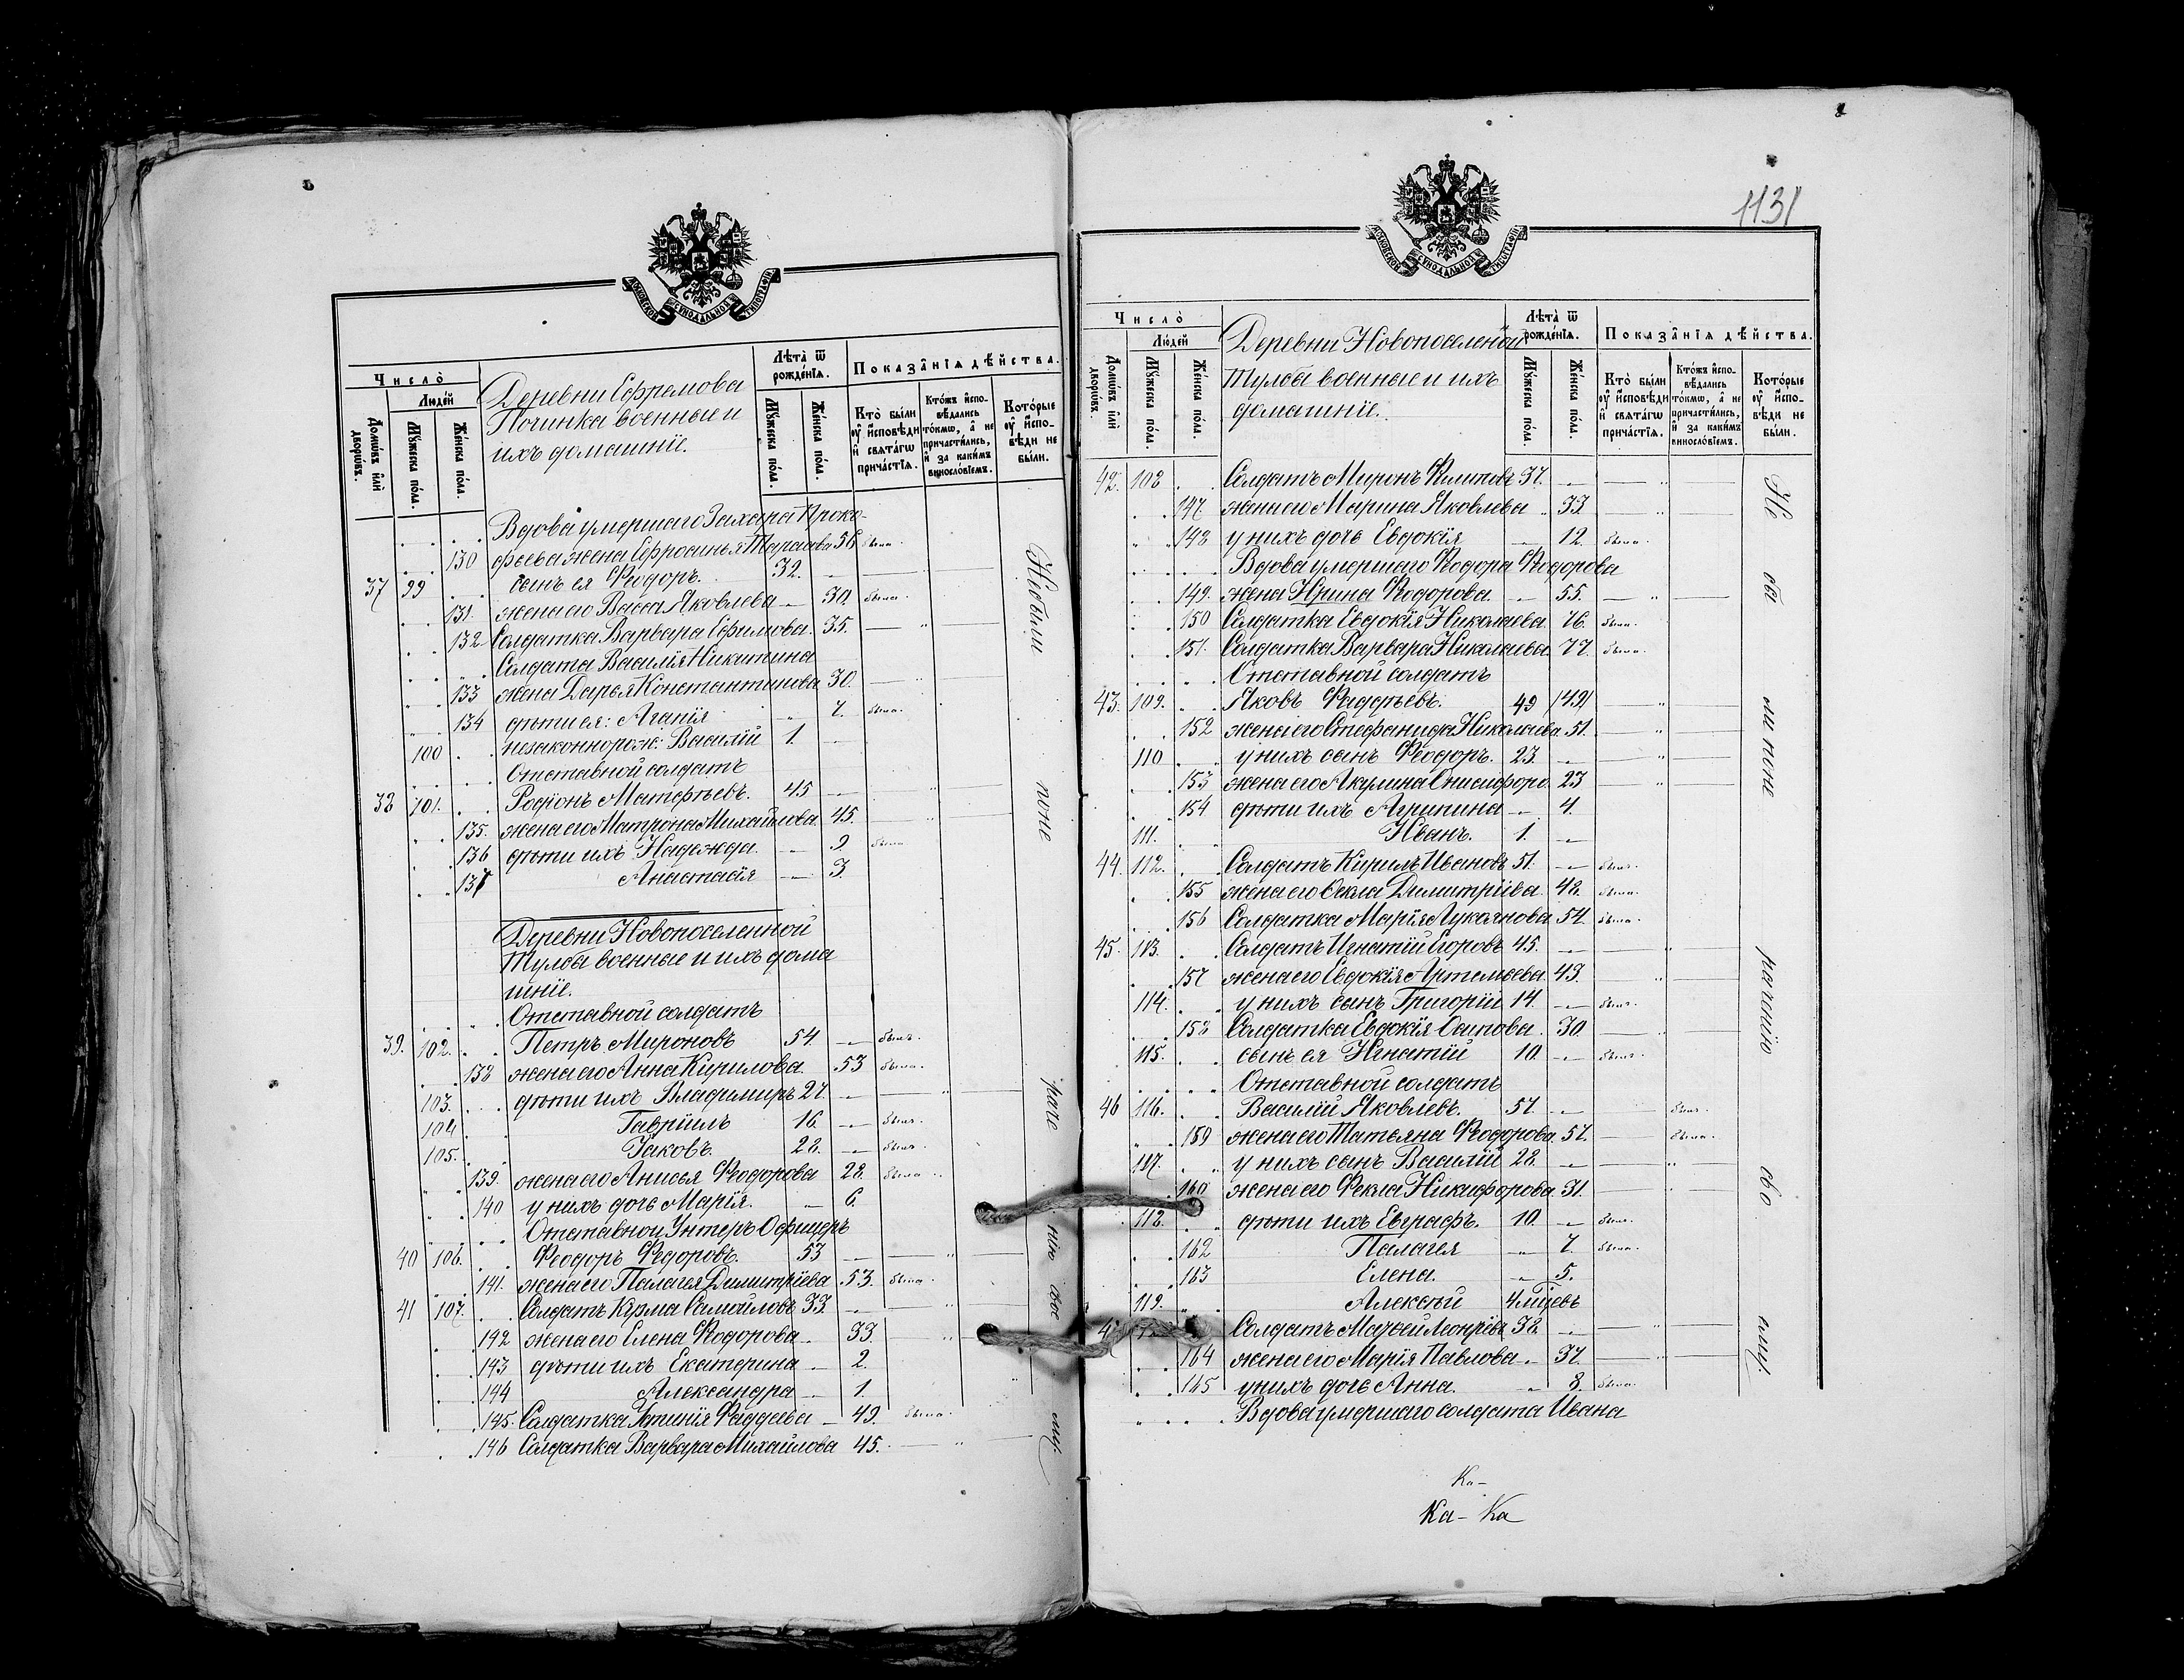 МОСКОВСКОЙ СѴНОДАЛЬНОЙ ТИПОГРАФІИ
Число̀
Людей
Домѡвъ и҆лѝ дворѡвъ.
Мꙋжеска по́ла.
Же́нска по́ла.
Деревни Ефремова
Починка военные и
ихъ домашніе.
Лѣта̀ ѿ рожде́нїѧ.
Мꙋжеска по́ла.
Же́нска по́ла.
Показа̑нїѧ дѣ́йства.
Кто̀ бы́ли ᲂу҆ и҆сповѣди и҆ свѧта́гѡ прича́стїѧ.
Кто́жъ и҆спо-вѣдались то́кмѡ, а҆ не причасти́лись, и҆ за каки́мъ винослові́емъ.
Кото́рые ᲂу҆ и҆спо-вѣди не бы́ли.
Вдова умершаго Захара Проко-
130 фьева жена Ефросинья Тарасова 56 была.
37 99 сынъ ея Ѳеодоръ. 32. —
131. жена его Васса Яковлева — 30. была.
132 Солдатка Варвара Ефимова. 35. — „ —
Солдата Василія Никитина
133 жена Дарья Константинова 30. — „ —
134 дѣти ея: Агапія „ 7. была.
100 незаконнорож: Василій 1. —
Отставной солдатъ
38 101. Родіонъ Матѳѣевъ. 45 — „ —
135. жена его Матрона Михайлова. 45. „ —
136 дѣти ихъ Надежда. — 9 была
137 Анастасія — 3.
Деревни Новопоселенной
Тулбы военные и ихъ дома
шніе.
Отставной солдатъ
39. 102. Петръ Мироновъ 54. — былъ.
138 жена его Анна Кирилова. 53 была.
103. дѣти ихъ Владимиръ 27. — „ —
104 Гавріилъ 16. — былъ.
105. Іаковъ. 28. — былъ.
139. жена его Анисья Ѳеодорова 28. была
140 у нихъ дочь Марія. „ 6.
Отставной Унтеръ Офицеръ
40 106. Ѳеодоръ Ѳедоровъ. 53 — „ —
141. жена его Палагея Димитріева 53. была.
41 107. Солдатъ Кузма Самойловъ 33. — „ —
142 жена его Елена Ѳедорова. 33. „ —
143 дѣти ихъ Екатерина — 2.
144 Александра — 1.
145. Солдатка Ѳаддеева — 49. была.
146 Солдатка Варвара Михайлова 45. — „ —
Не были поне раче нію свое му.
1131
МОСКОВСКОЙ СѴНОДАЛЬНОЙ ТИПОГРАФІИ
Число̀
Людей
Домѡвъ и҆лѝ дворѡвъ.
Мꙋжеска по́ла.
Же́нска по́ла.
Деревни Новопоселеной
Тулбы военные и ихъ
домашніе.
Лѣта̀ ѿ рожде́нїѧ.
Мꙋжеска по́ла.
Же́нска по́ла.
Показа̑нїѧ дѣ́йства.
Кто̀ бы́ли ᲂу҆ и҆сповѣди и҆ свѧта́гѡ прича́стїѧ.
Кто́жъ и҆спо-вѣдались то́кмѡ, а҆ не причасти́лись, и҆ за каки́мъ винослові́емъ.
Кото́рые ᲂу҆ и҆спо-вѣди не бы́ли.
42. 108 Солдатъ Миронъ Филиповъ 37. — „ —
147 жена его Марина Яковлева „ 33. — „ —
148 у нихъ дочь Евдокія — 12. была.
Вдова умершаго Ѳедора Ѳедорова
149. жена Ирина Ѳедорова. — 55. — „ —
150 Солдатка Евдокія Николаева 76. была.
151. Солдатка Варвара Николаева 77. была.
Отставной солдатъ
43. 109. Яковъ Ѳаддѣевъ. 49 /49/ „ —
152 жена его Стефанида Николаева 51. — „ —
110 у нихъ сынъ Ѳеодоръ. 23. — „ —
153 жена его Акулина Онисифоро. 23 „ —
154 дѣти ихъ Агрипина — 4.
111. Иванъ. 1. —
44. 112. Солдатъ Кирилъ Ивановъ 51. — былъ.
155 жена его Ѳекла Димитріева 48. была.
156 Солдатка Марія Лукоянова 54. была.
45. 113. Солдатъ Игнатій Егоровъ 45. — „ —
157 жена его Евдокія Артемьева. 43. „ —
114. у нихъ сынъ Григорій 14. — былъ.
158 Солдатка Евдокія Осипова. 30. — „ —
115. сынъ ея Игнатій 10. — былъ.
Отставной солдатъ
46 116. Василій Яковлевъ. 57 — — былъ.
159 жена его Татьяна Ѳеодорова. 57. — была.
117. у нихъ сынъ Василій 28. — „ —
160 жена его Ѳекла Никифорова 31. — „ —
118. дѣти ихъ Евграфъ. 10. — былъ.
162 Палагея — 7. была.
163 Елена. — 5.
119. Алексѣй 4 мѣсцевъ
Солдатъ 38. — „ —
164 жена его Марія Павлова. „ 37. — „ —
165 у нихъ дочь Анна. „ 8. была.
Вдова умершаго солдата Ивана
Не бы ли поне раченію сво ему.
Ка-
Ка- Ка